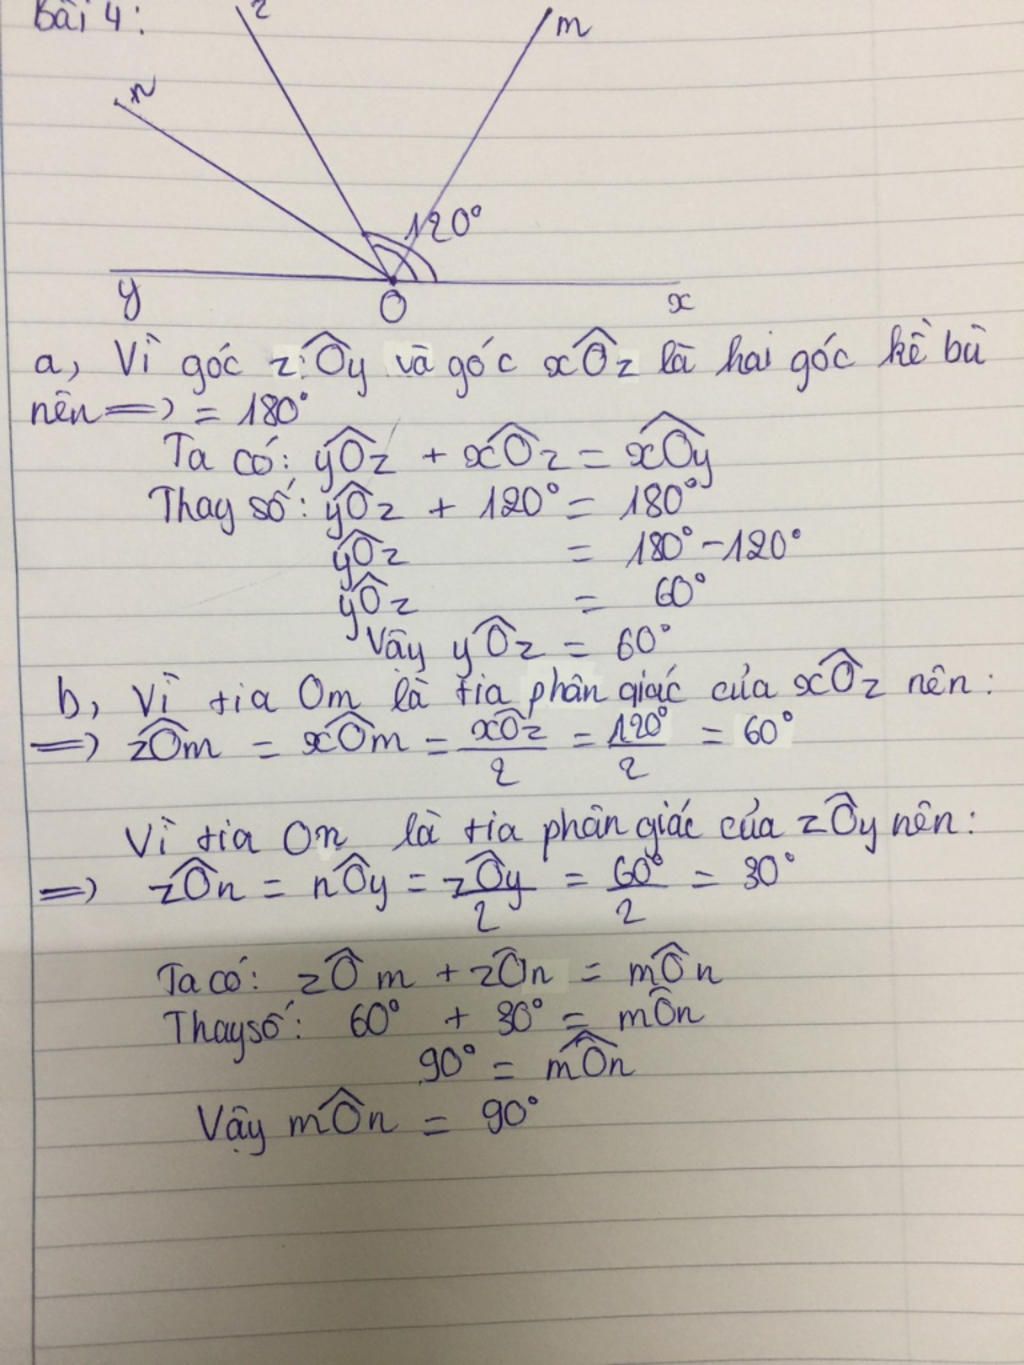 Bài 4:
z
m
n
120°
y
O
x
a, Vì góc zÔy và góc xÔz là hai góc kề bù
nên => = 180°
Ta có: yÔz + xÔz = xÔy
Thay số: yÔz + 120° = 180°
yÔz = 180° - 120°
yÔz = 60°
Vậy yÔz = 60°
b, Vì tia Om là tia phân giác của xÔz nên:
=> zÔm = xÔm = xÔz/2 = 120°/2 = 60°
Vì tia On là tia phân giác của zÔy nên:
=> zÔn = nÔy = zÔy/2 = 60°/2 = 30°
Ta có: zÔm + zÔn = mÔn
Thay số: 60° + 30° = mÔn
90° = mÔn
Vậy mÔn = 90°